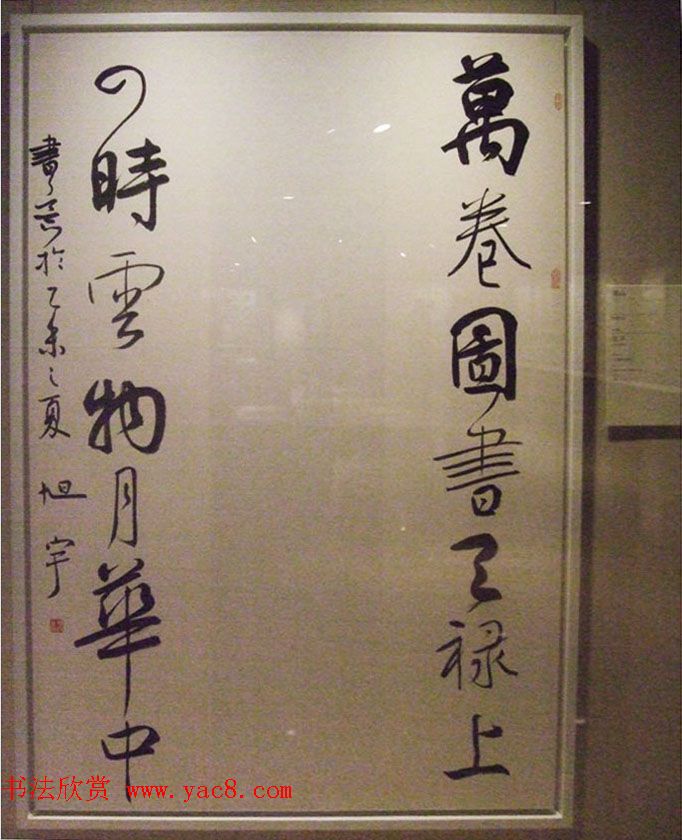 萬卷圖書天禄上
四時雲物月華中
書於乙未之夏 旭宇
书法欣赏 www.yac8.com